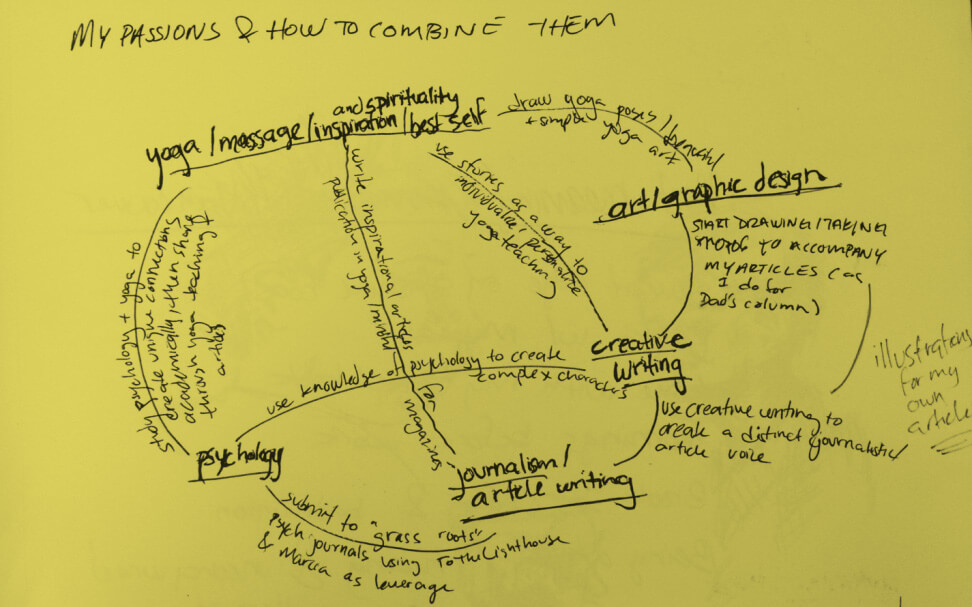 MY PASSIONS & HOW TO COMBINE THEM
and spirituality
yoga/massage/inspiration/best self
draw yoga poses/
+ simple yoga art
art/graphic design
START DRAWING/TAKING
TO ACCOMPANY
MY ARTICLES (as
I do for
Dad's column)
illustrations
for my
own
article
use stories as a way to
individualize/personalize
yoga teaching
write inspirational articles for
publication in yoga/ magazines
study psychology + yoga to
create unique connections
academically, then share
through yoga teaching +
articles
creative
writing
use knowledge of psychology to create
complex characters
use creative writing to
create a distinct journalistic/
article voice
psychology
journalism/
article writing
submit to "grass roots"
psych journals using ToTheLighthouse
& as leverage